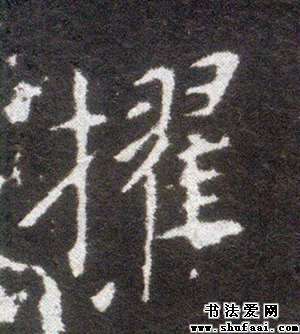 擢
书法爱网
www.shufaai.com